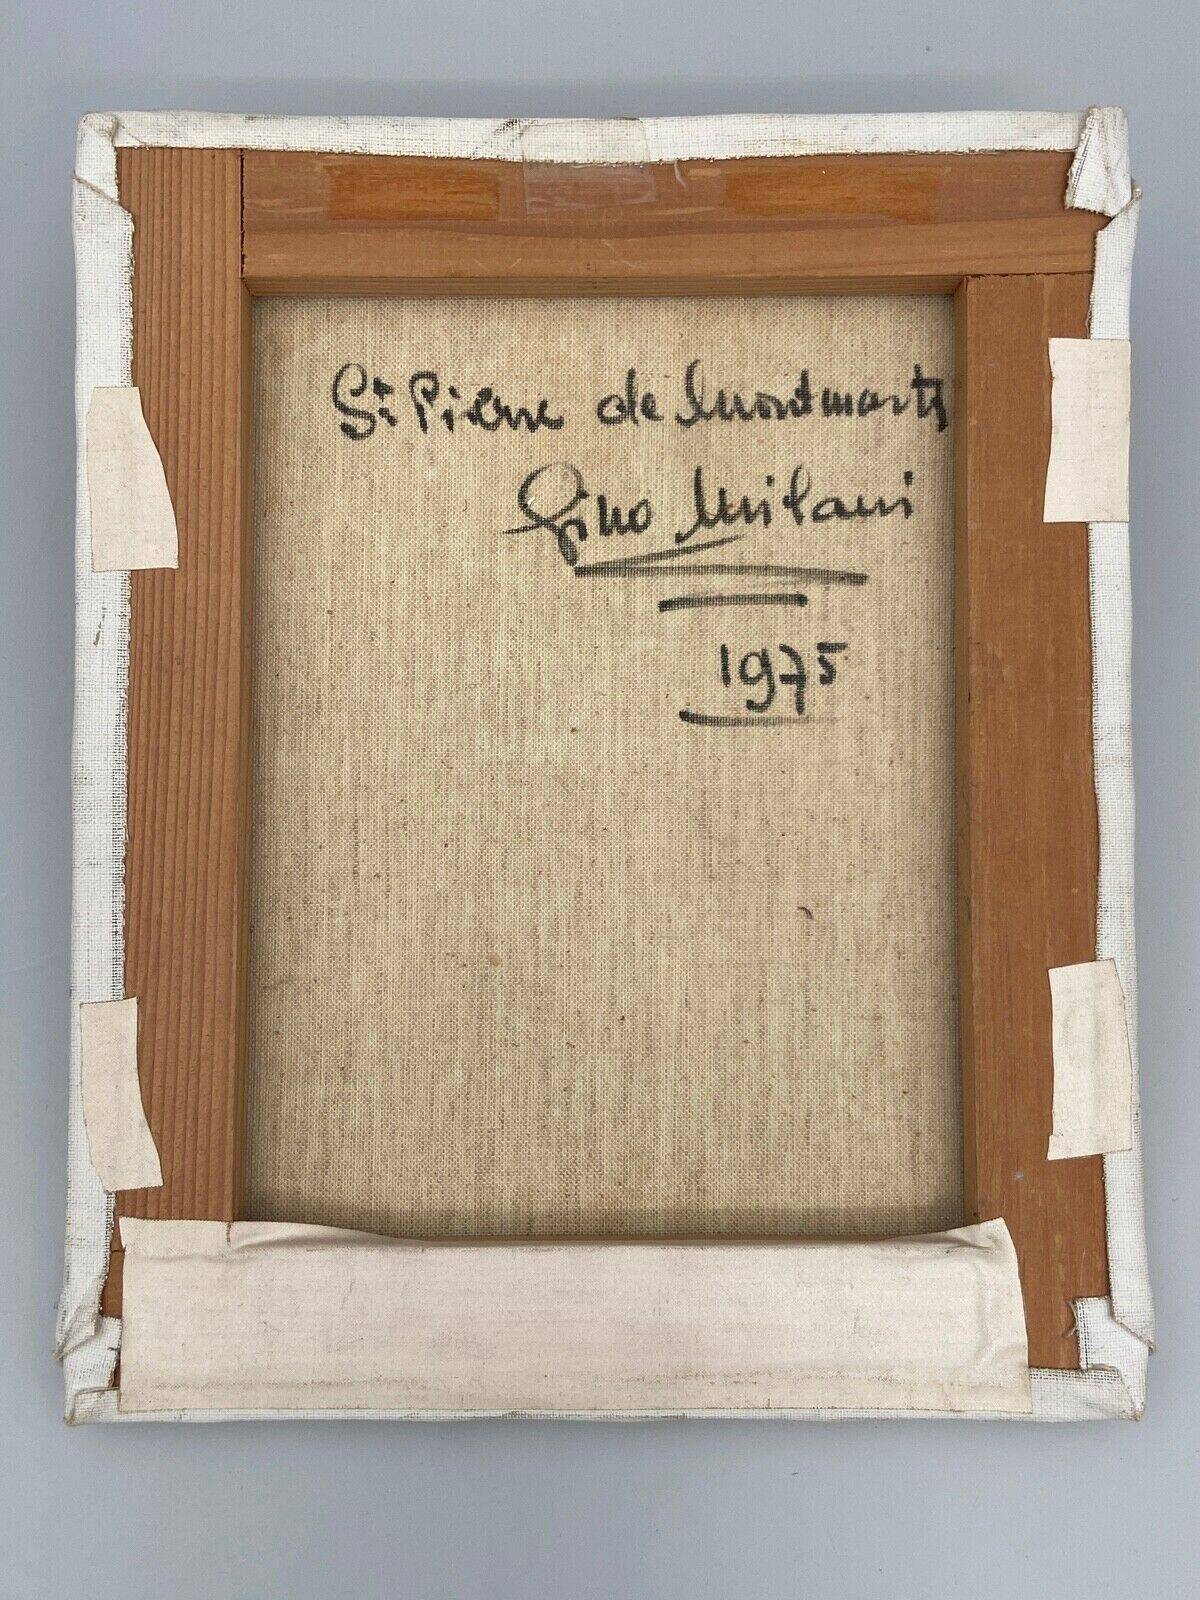 St Pierre de Montmartre
Gino Milani
1975